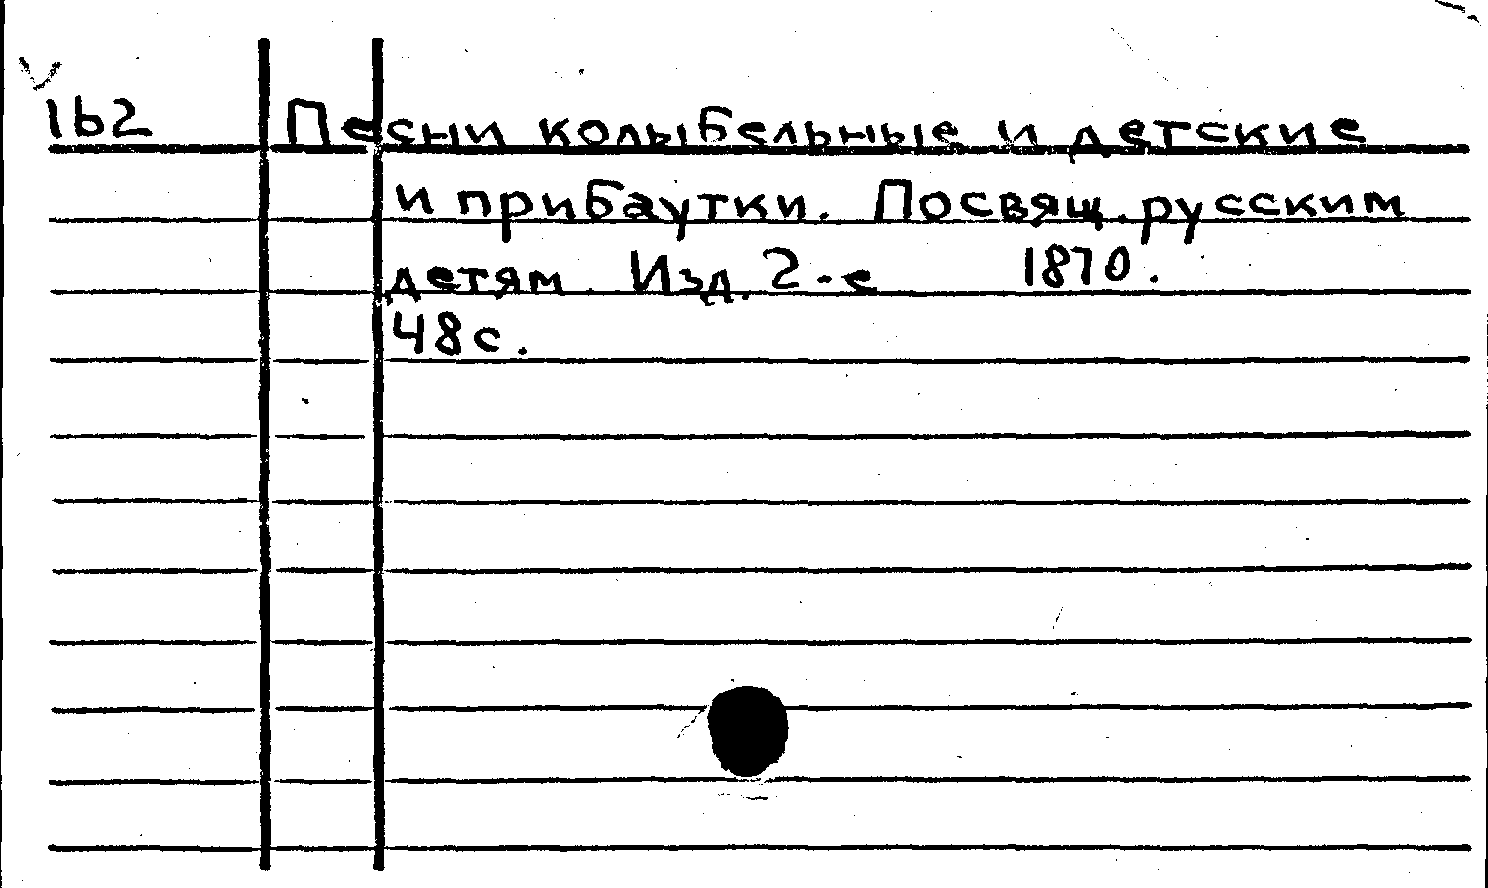 1b2 Песни колыбельные и детские
и прибаутки. Посвящ. русским
детям. Изд. 2-е 1870.
48 с.